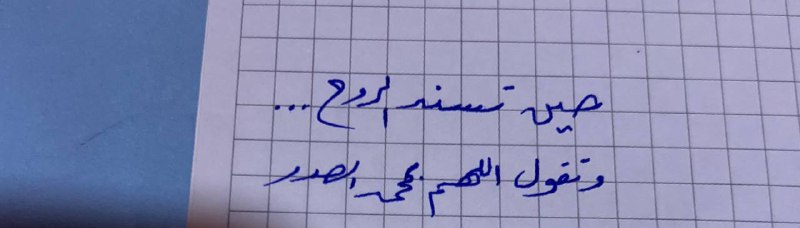 حين تسند الروح ...
وتقول اللهم الصدر